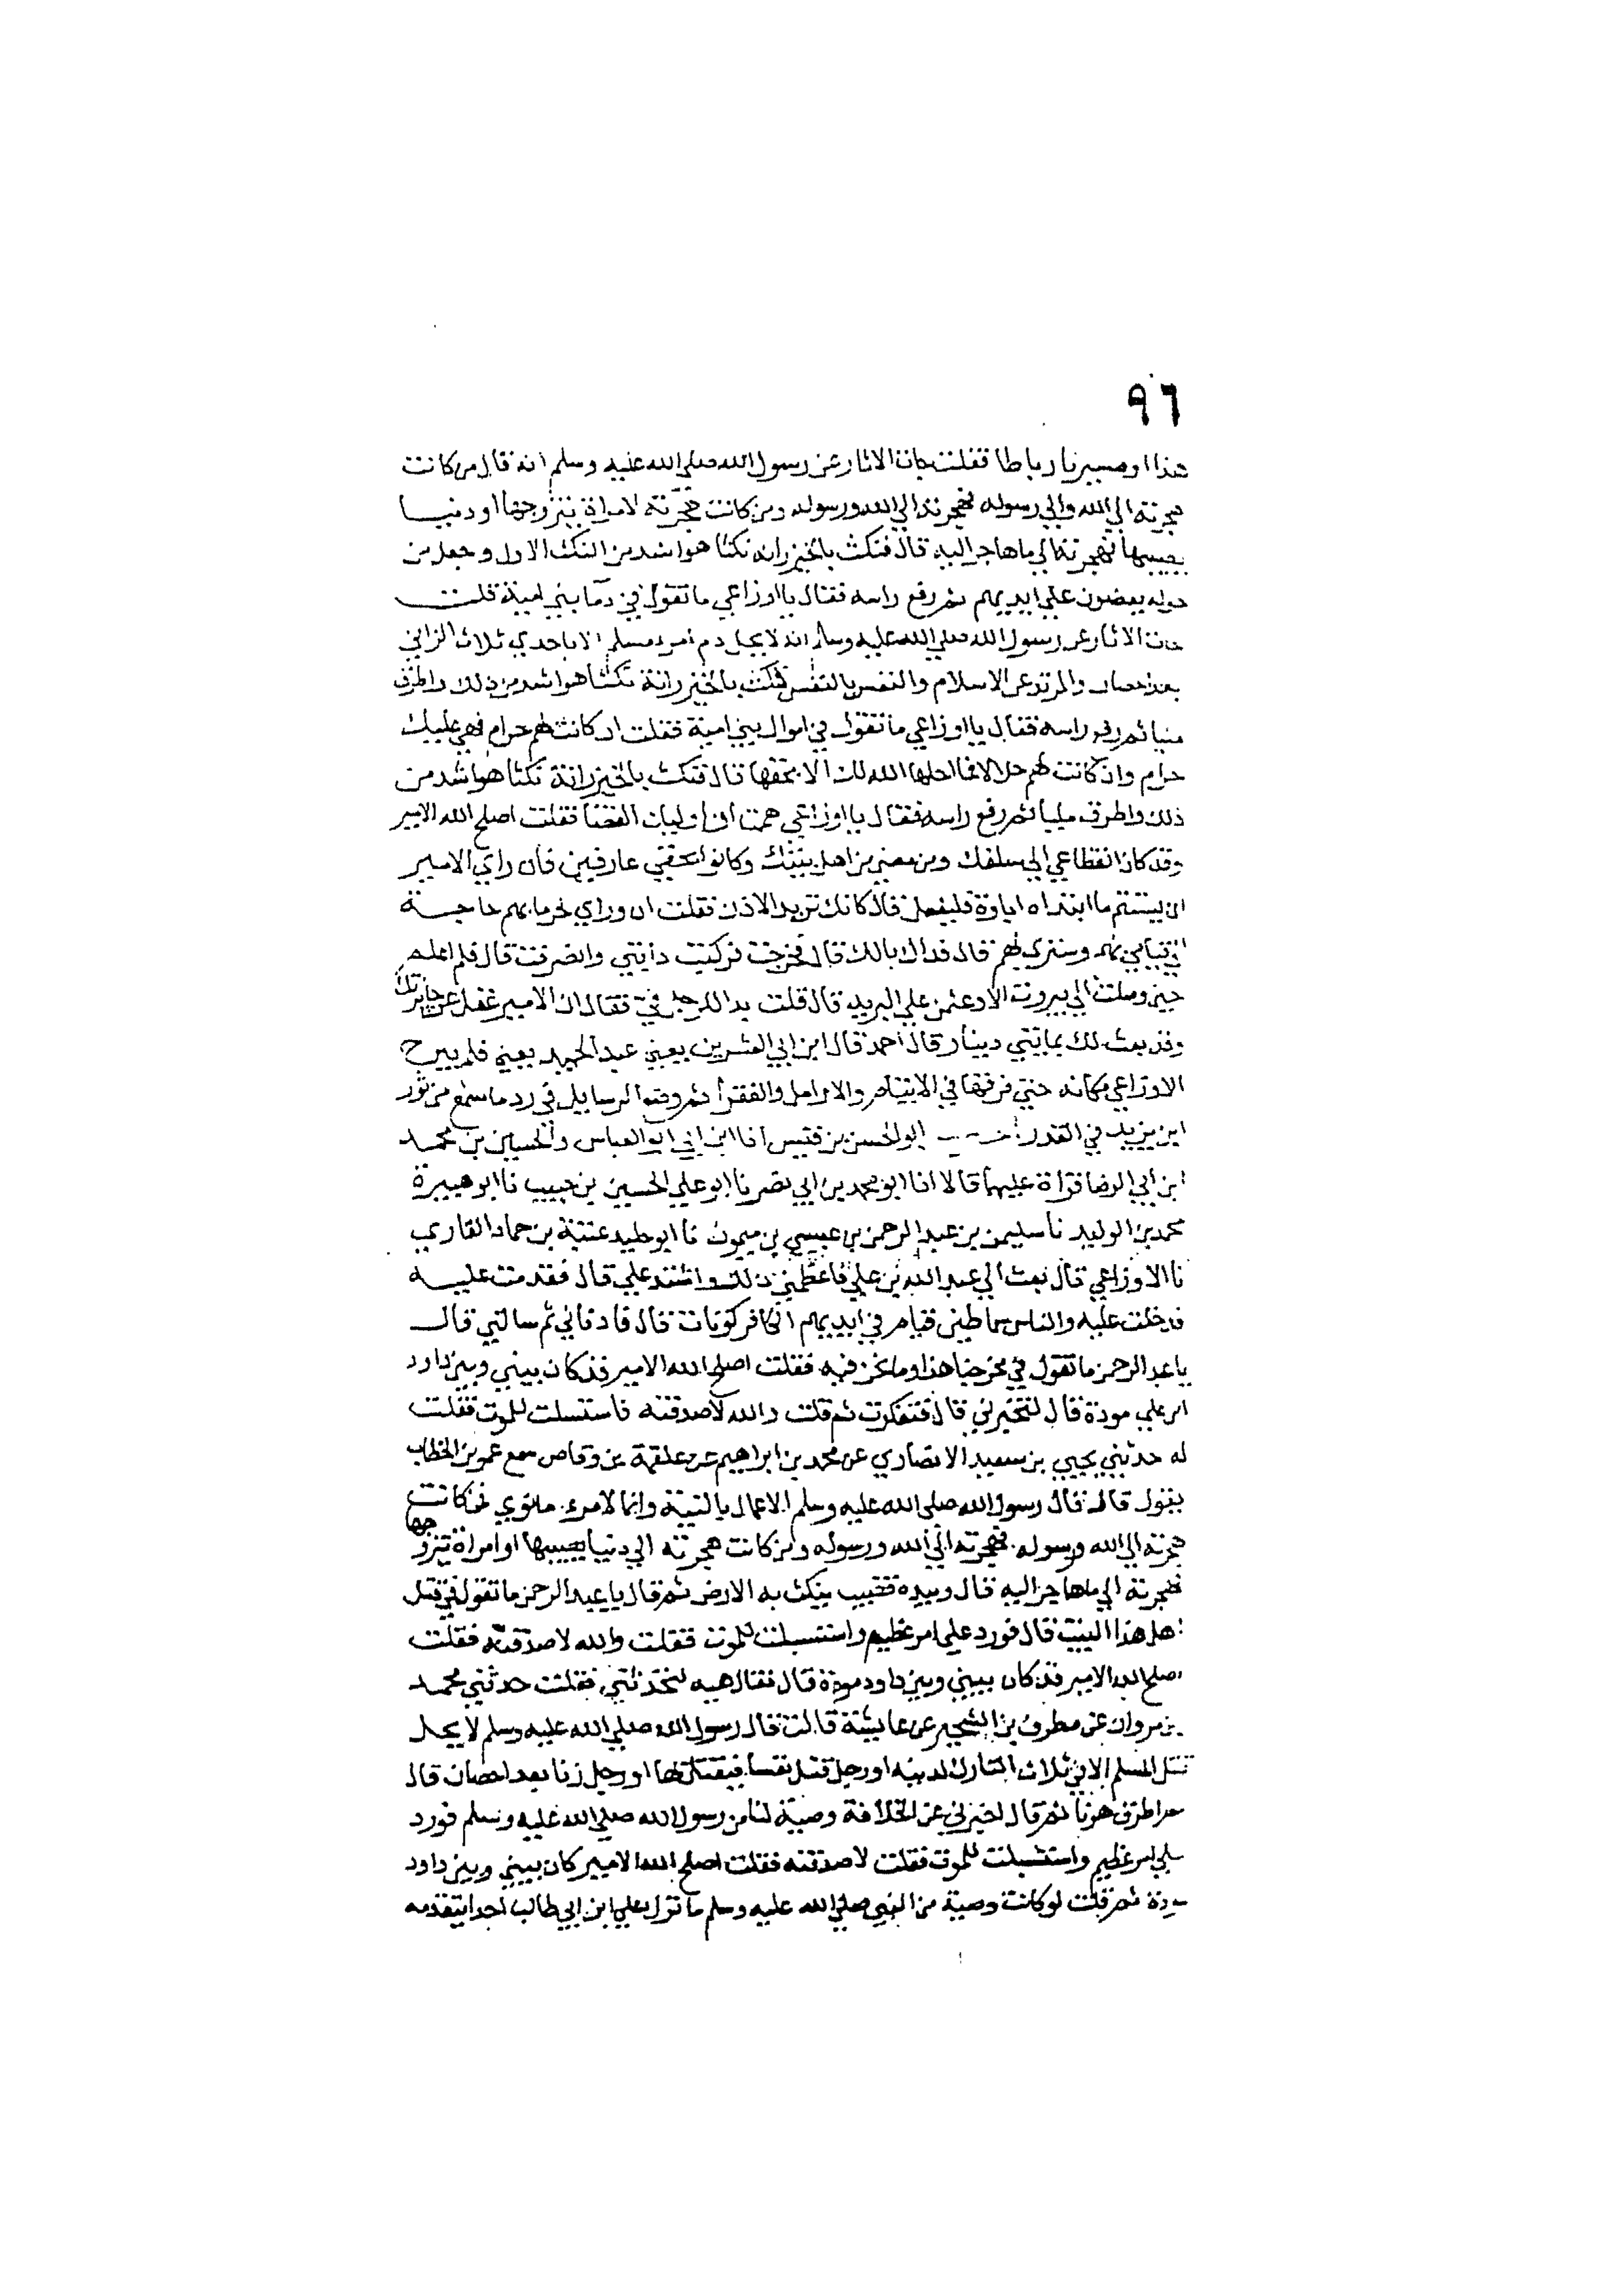 ٩٦
هذا ومسيرنا رباطا فقلت جات الاثار عن رسول الله صلى الله عليه وسلم انه قال من كانت
هجرته الي الله والي رسوله فهجرته الي الله ورسوله ومن كانت هجرته لامراة يتزوجها او دنيا
يصيبها فهجرته الي ما هاجر اليه قال فنكث بالخيزرانه نكثا هو اشد من النكث الاول وجعل من
حوله يعضون علي ايديهم ثم رفع راسه فقال يا اوزاعي ما تقول في دما بني امية قلت
جات الاثار عن رسول الله صلي الله عليه وسلم انه لا يحل دم امرء مسلم الا باحدي ثلاث الزاني
بعد احصان والمرتد عن الاسلام والنفس بالنفس فنكث بالخيزرانة نكثا هو اشد من ذلك واطرق
مليا ثم رفع راسه فقال يا اوزاعي ما تقول في اموال بني امية فقلت ان كانت لهم حرام فهي عليك
حرام وان كانت لهم حلالا فما احلها الله لك الا بحقها قال فنكث بالخيزرانة نكثا هو اشد من
ذلك واطرق مليا ثم رفع راسه فقال يا اوزاعي هممت ان اوليك القضا فقلت اصلح الله الامير
وقد كان انقطاعي الي سلفك ومن مضي من اهل بيتك وكانوا بحقي عارفين فان راي الامير
ان يستتم ما ابتداه اباوه فليفعل قال كانك تريد الاذن فقلت ان وراي حرما بهم حاجة
الي قيامي بهم وستري لهم قال فذاك بالك قال فخرجت فركبت دابتي وانصرفت قال فلم اعلم
حين وصلت الي بيروت الا وعثمن علي البريد قال قلت بدا للرجل في فقال ان الامير غفل عن جايزتك
وقد بعث لك بمايتي دينار قال احمد قال ابن ابي العشرين يعني عبد الحميد يعني فلم يبرح
الاوزاعي مكانه حتي فرقها في الايتام والارامل والفقرا ثم وضع الرسايل في رد ما سمع من ثور
ابن يزيد في القدر ابو الحسن بن قبيس انا ابي ابو العباس والحسين بن محمد
ابن ابي الرضا قراة عليهما قالا انا ابو محمد بن ابي نصر نا ابو علي الحسين بن حبيب نا ابو هبيرة
محمد بن الوليد نا سليمن بن عبد الرحمن بن عيسي بن ميمون نا ابو خليد عتبة بن حماد القاري
نا الاوزاعي قال بعث الي عبد الله بن علي فاعظمني ذلك واشتد علي قال فقدمت عليه
فدخلت عليه والناس سماطين قيام في ايديهم الكافركوبات قال فادناني ثم سالني قال
يا عبد الرحمن ما تقول في مخرجنا هذا وما نحن فيه فقلت اصلح الله الامير قد كان بيني وبين داود
ابن علي مودة قال لتخبرني قال فتفكرت ثم قلت والله لاصدقنه فاستبسلت للموت فقلت
له حدثني يحيي بن سعيد الانصاري عن محمد بن ابراهيم عن علقمة بن وقاص سمع عمر بن الخطاب
يقول قال قال رسول الله صلى الله عليه وسلم الاعمال بالنية وانما لامرء ما نوي فمن كانت
هجرته الي الله ورسوله فهجرته الي الله ورسوله ومن كانت هجرته الي دنيا يصيبها او امراة يتزوجها
فهجرته الي ما هاجر اليه قال وبيده قضيب ينكث به الارض ثم قال يا عبد الرحمن ما تقول في قتل
اهل هذا البيت قال فورد علي امر عظيم واستبسلت للموت فقلت والله لاصدقنه فقلت
اصلح الله الامير قد كان بيني وبين داود مودة قال فقال هيه لتحدثني فقلت حدثني محمد
بن مروان عن مطرف بن الشخير عن عايشة قالت قال رسول الله صلي الله عليه وسلم لا يحل
قتل المسلم الا في ثلاث التارك لدينه او رجل قتل نفسا فيقتل بها او رجل زنا بعد احصان قال
ثم اطرق هونا ثم قال اخبرني عن الخلافة وصية لنا من رسول الله صلي الله عليه وسلم فورد
علي امر عظيم واستبسلت للموت فقلت لاصدقنه فقلت اصلح الله الامير كان بيني وبين داود
مودة ثم قلت لو كانت وصية من النبي صلي الله عليه وسلم ما ترك علي ابن ابي طالب احدا يتقدمه